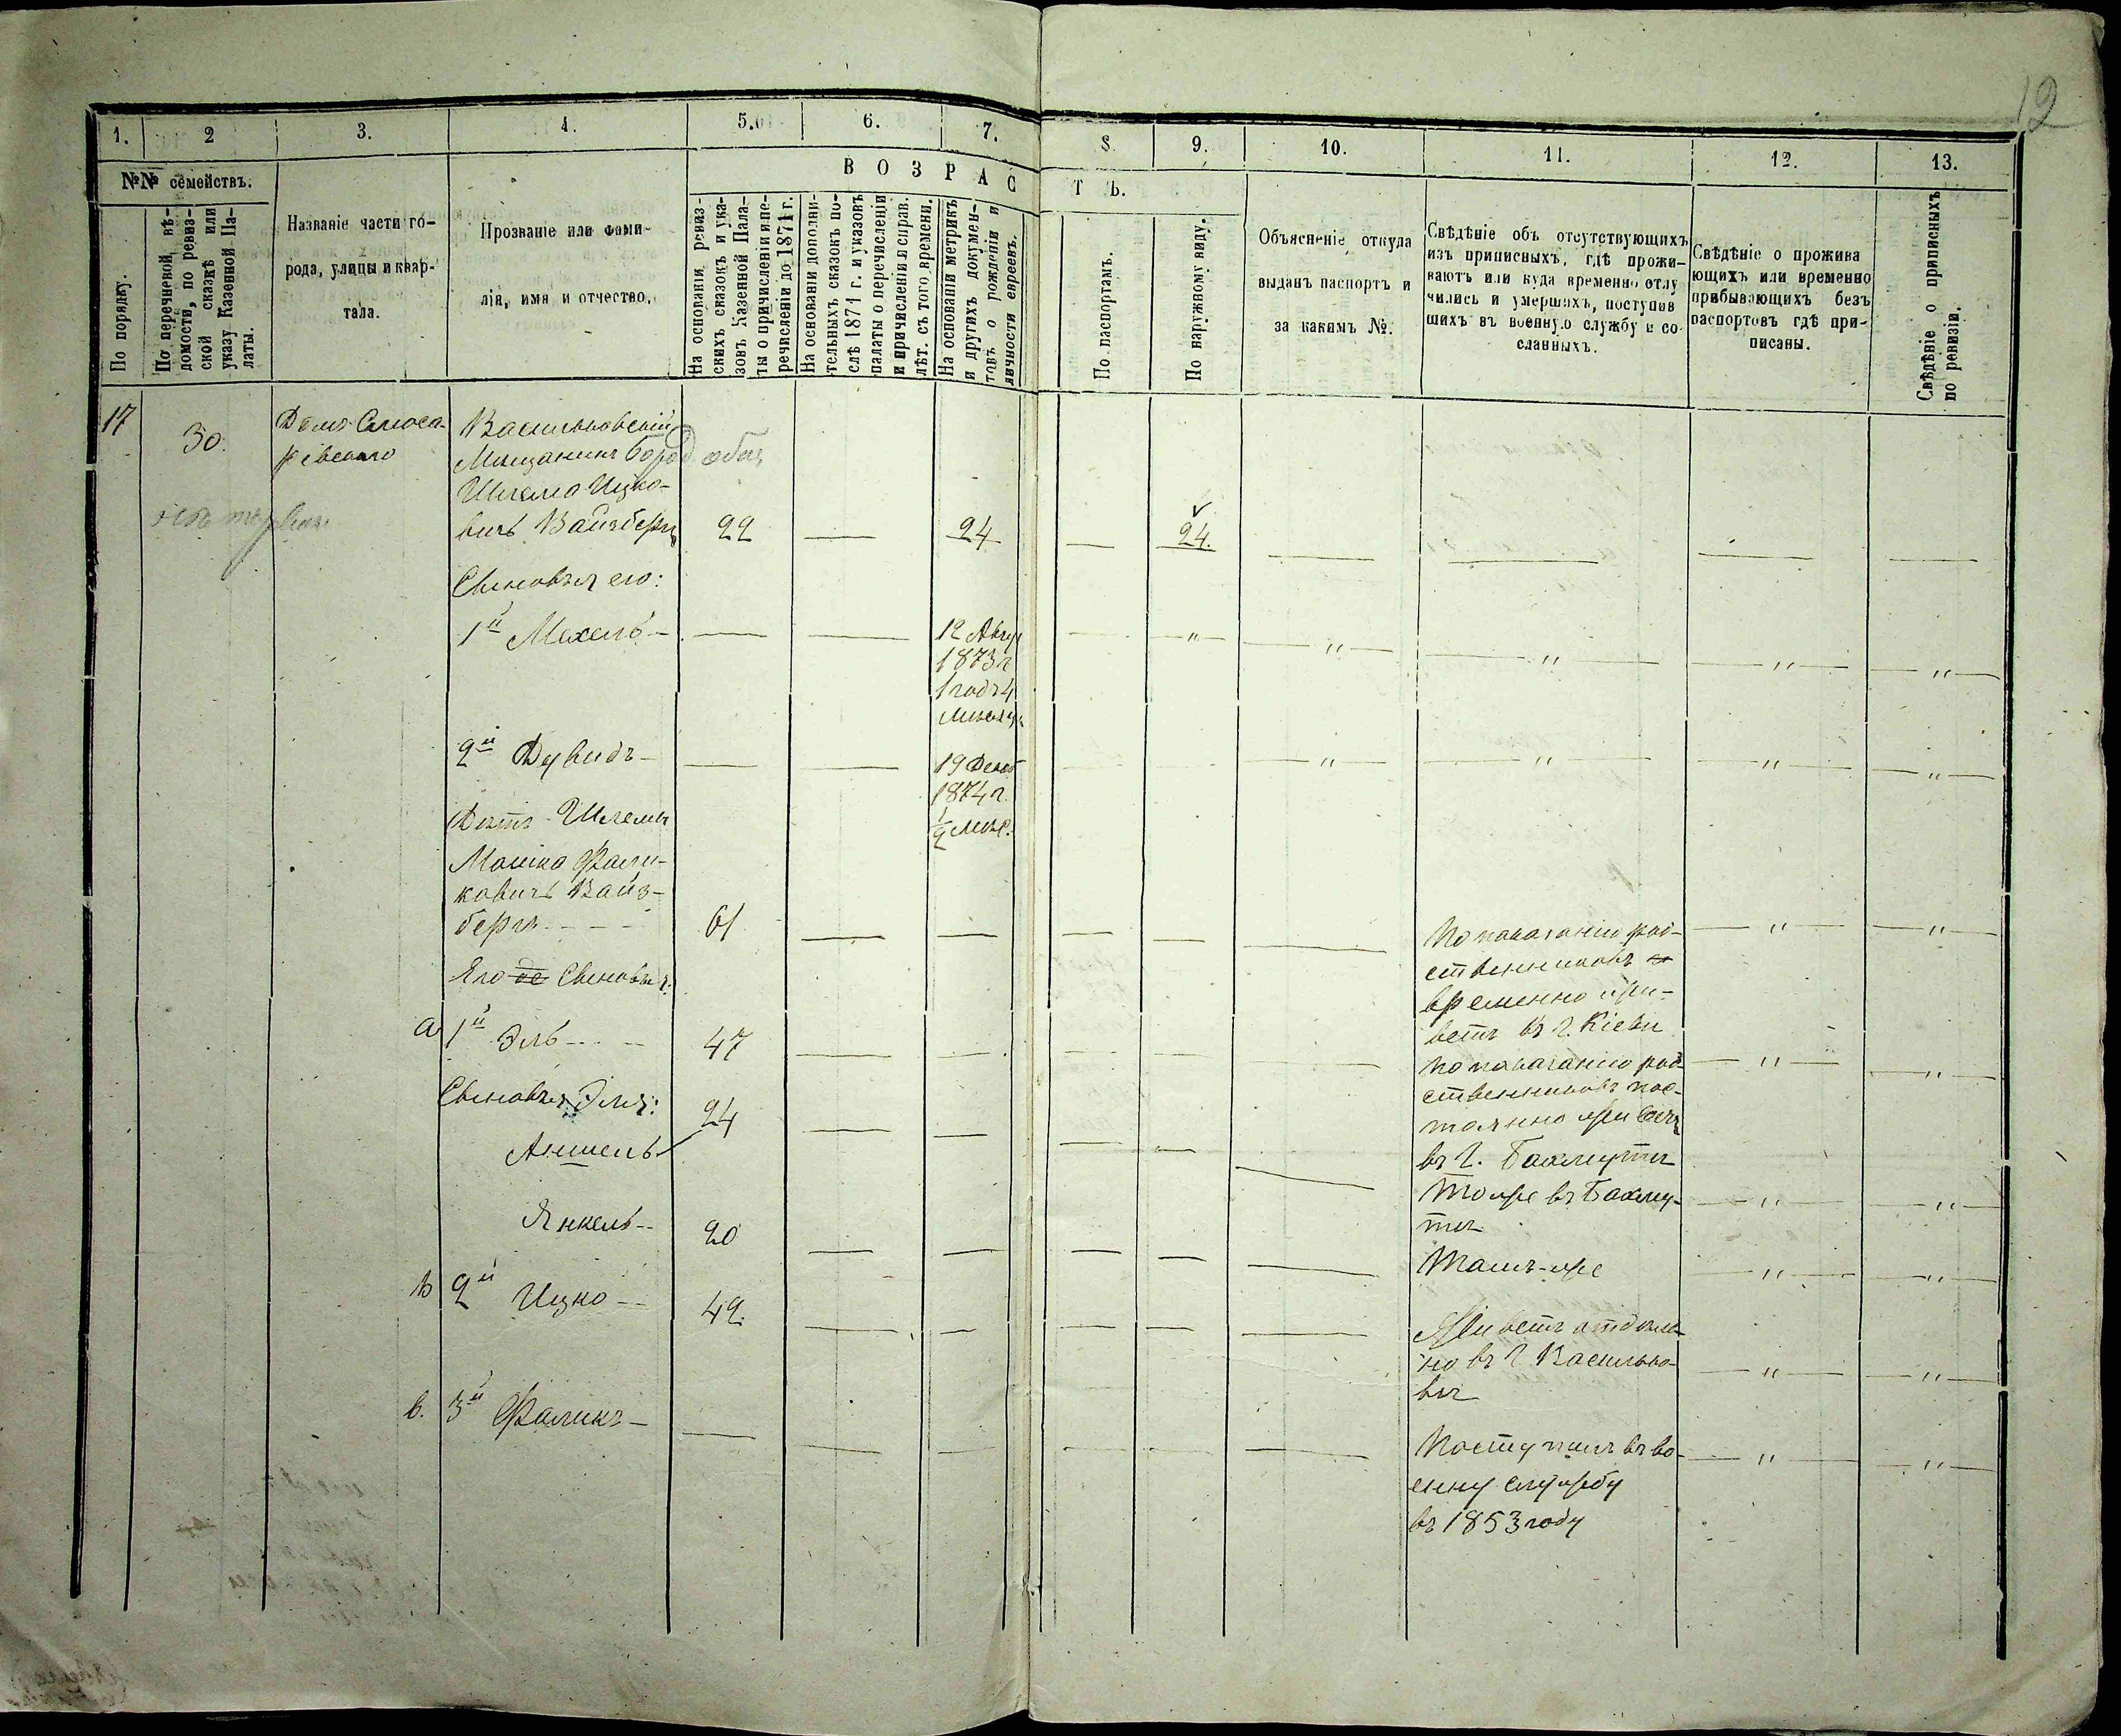 12
1. 2 3. 4. 5. 6. 7. 8 9. 10. 11. 12. 13.
№№ семействъ.
ВОЗРАСТЪ.
По порядку.
По перечневой вѣ-
домости, по ревиз-
ской сказкѣ или
указу Казенной Па-
латы.
Названіе части го-
рода, улицы и квар-
тала.
Прозваніе или фами-
лія, имя и отчество.
На основаніи ревиз-
скихъ сказокъ и ука-
зовъ Казенной Пала-
ты о причисленіи и пе-
речисленіи до 1871 г.
На основаніи дополни-
тельныхъ сказокъ по-
слѣ 1871 г. и указовъ
палаты о перечисленіи
и причисленіи и справ.
лѣт. съ того времени.
На основаніи метрикъ
и другихъ докумен-
товъ о рожденіи и
личности евреевъ.
По паспортамъ.
По наружному виду.
Объясненіе откуда
выданъ паспортъ и
за какимъ №.
Свѣдѣніе объ отсутствующихъ
изъ приписныхъ, гдѣ прожи-
ваютъ или куда временно отлу
чились и умершихъ, поступив
шихъ въ военную службу и со-
сланныхъ.
Свѣдѣніе о прожива
ющихъ или временно
прибывающихъ безъ
паспортовъ гдѣ при-
писаны.
Свѣдѣніе о приписныхъ
по ревизіи.
17 30. Домъ Слюса-
ревскаго
Васильковскій
Мѣщанинъ
Шлема Ицко-
вичъ Вайзбергъ 22 — 24 — 24. — — — —
Сыновья его:
1й Мехель — — — 12 Авгу
1873 г
1 годъ 4
мѣсяц.
— " — — " — — " — — " — — " —
2й Дувидъ — — — 19 Декаб
1874 г.
1/2 мѣс.
— " — — " — — " — — " —
Дѣдъ Шлемы
Мошко Фали-
ковичъ Вайз-
бергъ 61 — — — — —
По показанію род-
ственниковъ
временно жи-
ветъ въ г. Кіевѣ
— " — — " —
Его Сыновья:
а 1й Эль 47 — — — — —
По показанію род-
ственниковъ пос-
тоянно живетъ
въ г. Бахмутѣ
— " — — " —
Сыновья Эля:
Аншель 24 — — — — —
Тоже въ Бахму-
тѣ
— " — — " —
Янкель 20 — — — — —
Тамъ-же
— " — — " —
б 2й Ицко — 42. — — — — —
Живетъ отдѣль-
но въ г. Василько-
вѣ
— " — — " —
в. 3й Фаликъ — — — — — — —
Поступилъ въ во-
енну службу
въ 1853 году
— " — — " —